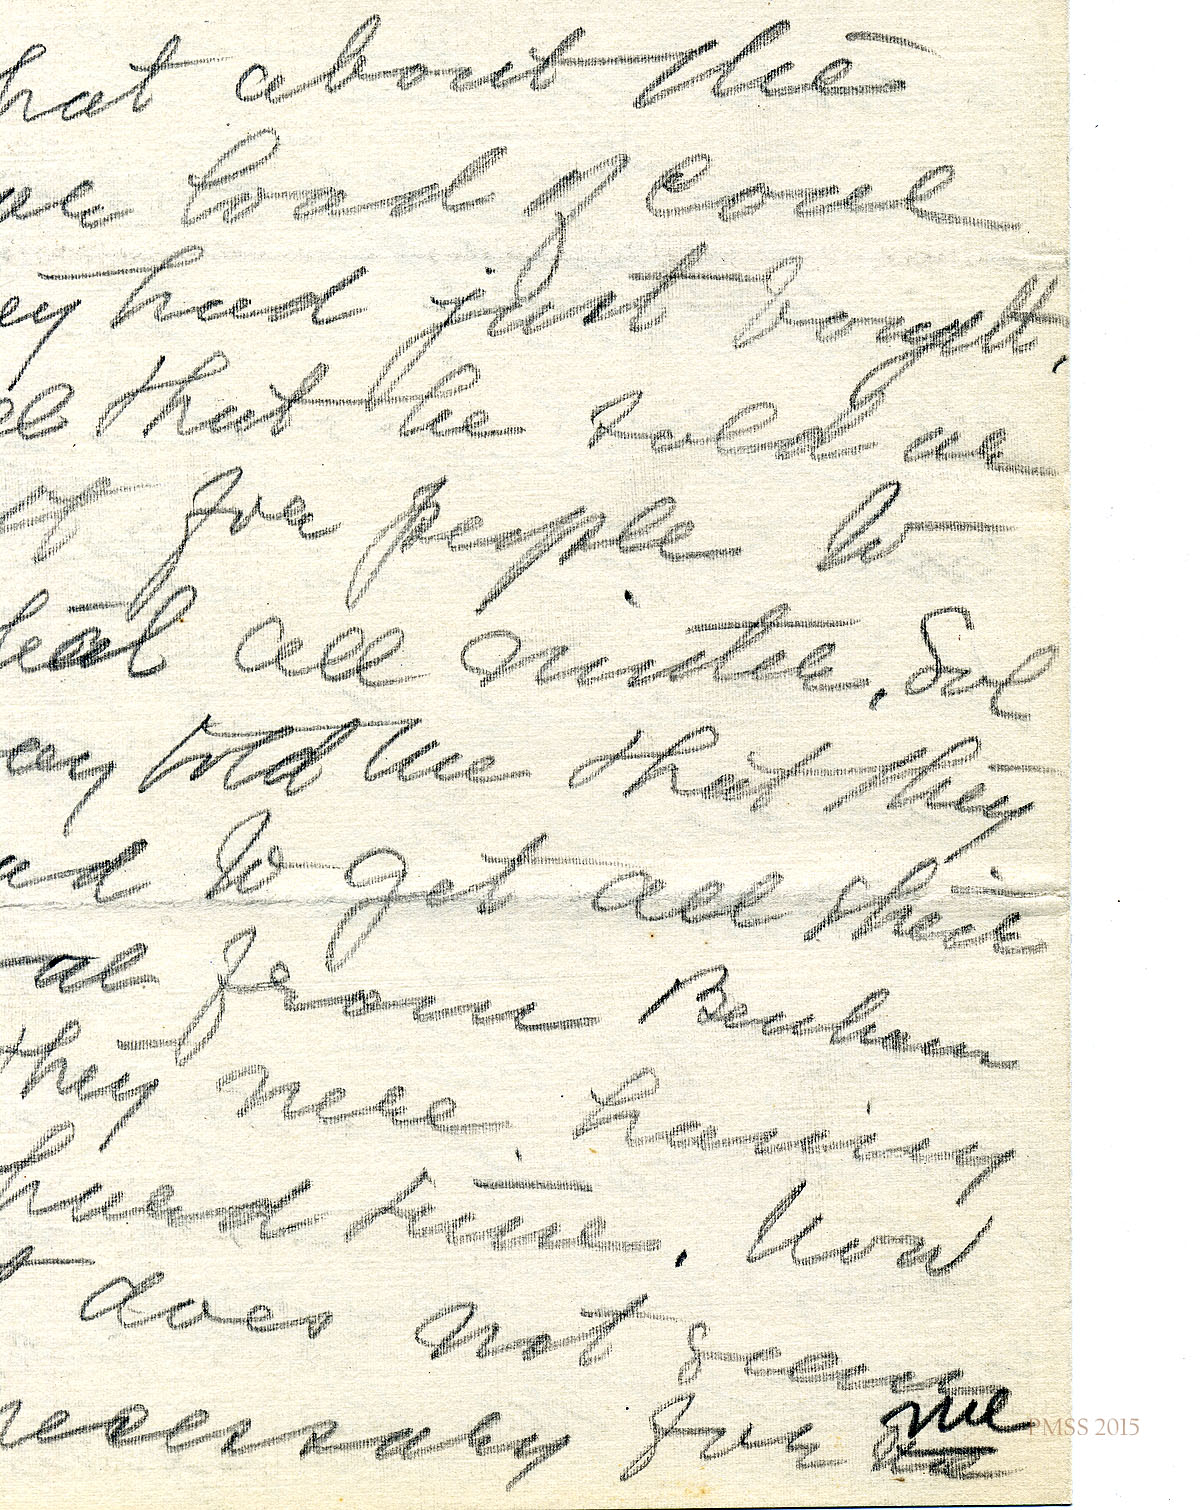 hat about the
ne load of coal
ey had just bought,
el that he told us
of for people to
heat all winter. Sol
ay told me that they
ad to get all their
al from Benham
they were having
hard time. Now
t does not seem
necessary for me
PMSS 2015